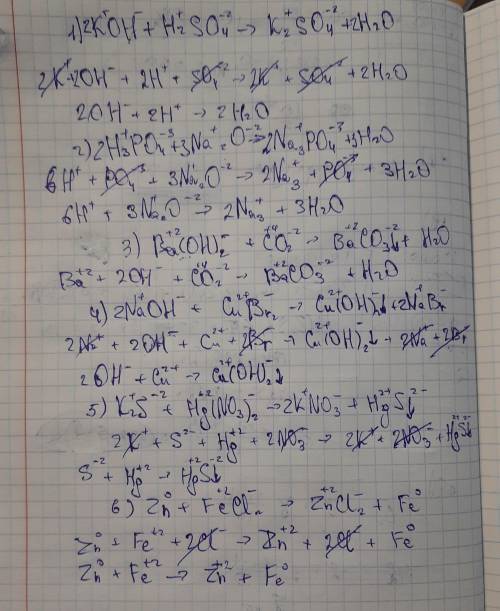 1) 2K⁺OH⁻ + H₂⁺SO₄⁻² → K₂⁺SO₄⁻² + 2H₂O
2K⁺ + 2OH⁻ + 2H⁺ + SO₄⁻² → 2K⁺ + SO₄⁻² + 2H₂O
2OH⁻ + 2H⁺ → 2H₂O
2) 2H₃⁺PO₄⁻³ + 3Na₂⁺O⁻² → 2Na₃⁺PO₄⁻³ + 3H₂O
6H⁺ + PO₄⁻³ + 3Na₂⁺O⁻² → 2Na₃⁺ + PO₄⁻³ + 3H₂O
6H⁺ + 3Na₂⁺O⁻² → 2Na₃⁺ + 3H₂O
3) Ba⁺²(OH)₂⁻ + C⁺⁴O₂⁻² → Ba⁺²CO₃⁻²↓ + H₂O
Ba⁺² + 2OH⁻ + C⁺⁴O₂⁻² → Ba⁺²CO₃⁻² + H₂O
4) 2Na⁺OH⁻ + Cu²⁺Br₂⁻ → Cu²⁺(OH)₂⁻↓ + 2Na⁺Br⁻
2Na⁺ + 2OH⁻ + Cu²⁺ + 2Br⁻ → Cu²⁺(OH)₂⁻↓ + 2Na⁺ + 2Br⁻
2OH⁻ + Cu²⁺ → Cu²⁺(OH)₂⁻↓
5) K₂⁺S⁻² + Hg⁺²(NO₃)₂⁻ → 2K⁺NO₃⁻ + Hg²⁺S²⁻↓
2K⁺ + S⁻² + Hg⁺² + 2NO₃⁻ → 2K⁺ + 2NO₃⁻ + Hg²⁺S²⁻↓
S⁻² + Hg⁺² → Hg⁺²S⁻²↓
6) Zn⁰ + Fe⁺²Cl₂⁻ → Zn⁺²Cl₂⁻ + Fe⁰
Zn⁰ + Fe⁺² + 2Cl⁻ → Zn⁺² + 2Cl⁻ + Fe⁰
Zn⁰ + Fe⁺² → Zn⁺² + Fe⁰